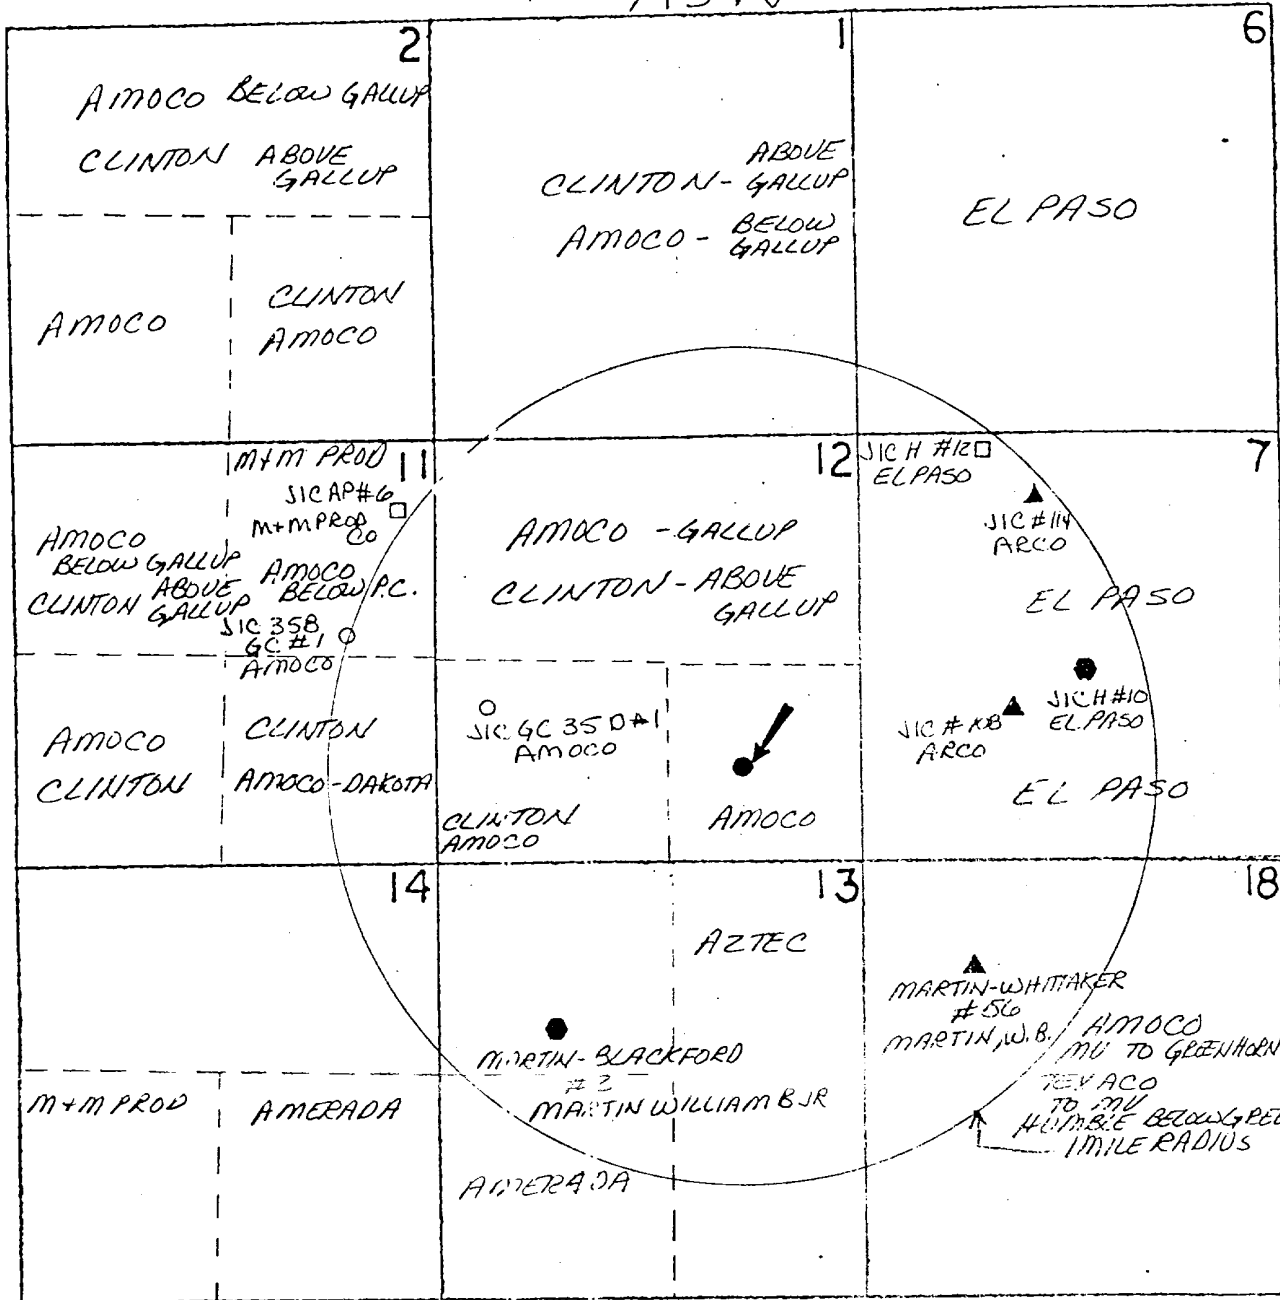 2
AMOCO BELOW GALLUP
CLINTON ABOVE
GALLUP
AMOCO
CLINTON
AMOCO
1
ABOVE
CLINTON - GALLUP
AMOCO - BELOW
GALLUP
6
EL PASO
M+M PROD 11
JIC AP #6
M+M PROD
CO
AMOCO
BELOW GALLUP
CLINTON ABOVE
GALLUP
AMOCO
BELOW P.C.
JIC 35B
GC #1
AMOCO
AMOCO
CLINTON
CLINTON
AMOCO-DAKOTA
12
AMOCO - GALLUP
CLINTON - ABOVE
GALLUP
JIC GC 35 D #1
AMOCO
CLINTON
AMOCO
AMOCO
JIC H #12
EL PASO
7
JIC #114
ARCO
EL PASO
JIC H #10
EL PASO
JIC #108
ARCO
EL PASO
14
M+M PROD
AMERADA
13
AZTEC
MARTIN-BLACKFORD
MARTIN WILLIAM B JR
AMERADA
18
MARTIN-WHITTAKER
#56
MARTIN, W.B.
AMOCO
MV TO GREENHORN
TEXACO
TO MV
HUMBLE BELOW GREE
1 MILE RADIUS